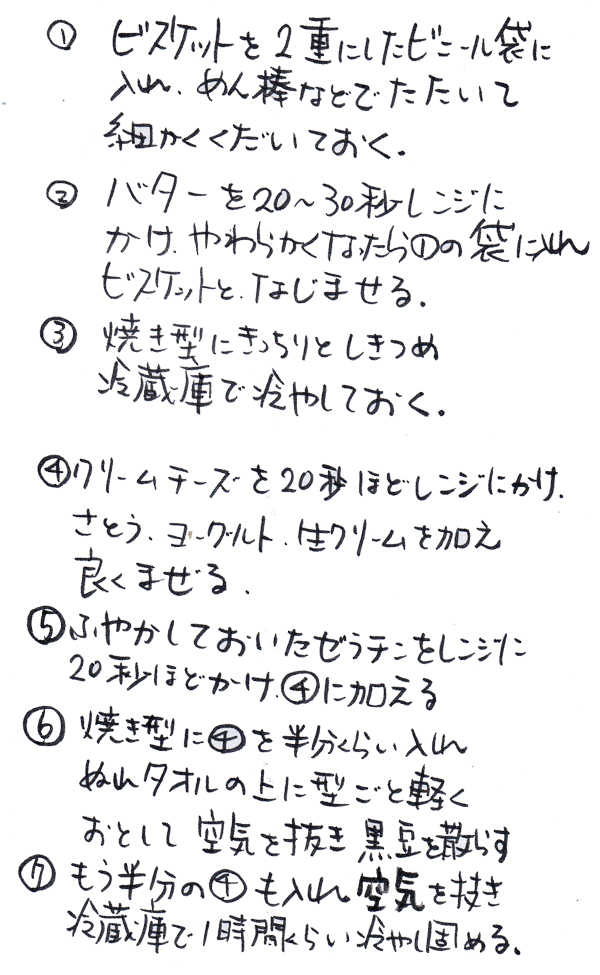 ① ビスケットを2重にしたビニール袋に
入れ、めん棒などでたたいて
細かくくだいておく.
② バターを20~30秒レンジに
かけ、やわらかくなったら①の袋に入れ
ビスケットと、なじませる.
③ 焼き型にきっちりとしきつめ
冷蔵庫で冷やしておく.
④クリームチーズを20秒ほどレンジにかけ、
さとう、ヨーグルト、生クリームを加え
良くまぜる.
⑤ふやかしておいたぜラチンをレンジに
20秒ほどかけ、④に加える
⑥ 焼き型に④を半分くらい入れ
ぬれタオルの上に型ごと軽く
おとして空気を抜き黒豆を散らす
⑦ もう半分の④も入れ空気を抜き
冷蔵庫で1時間くらい冷やし固める.